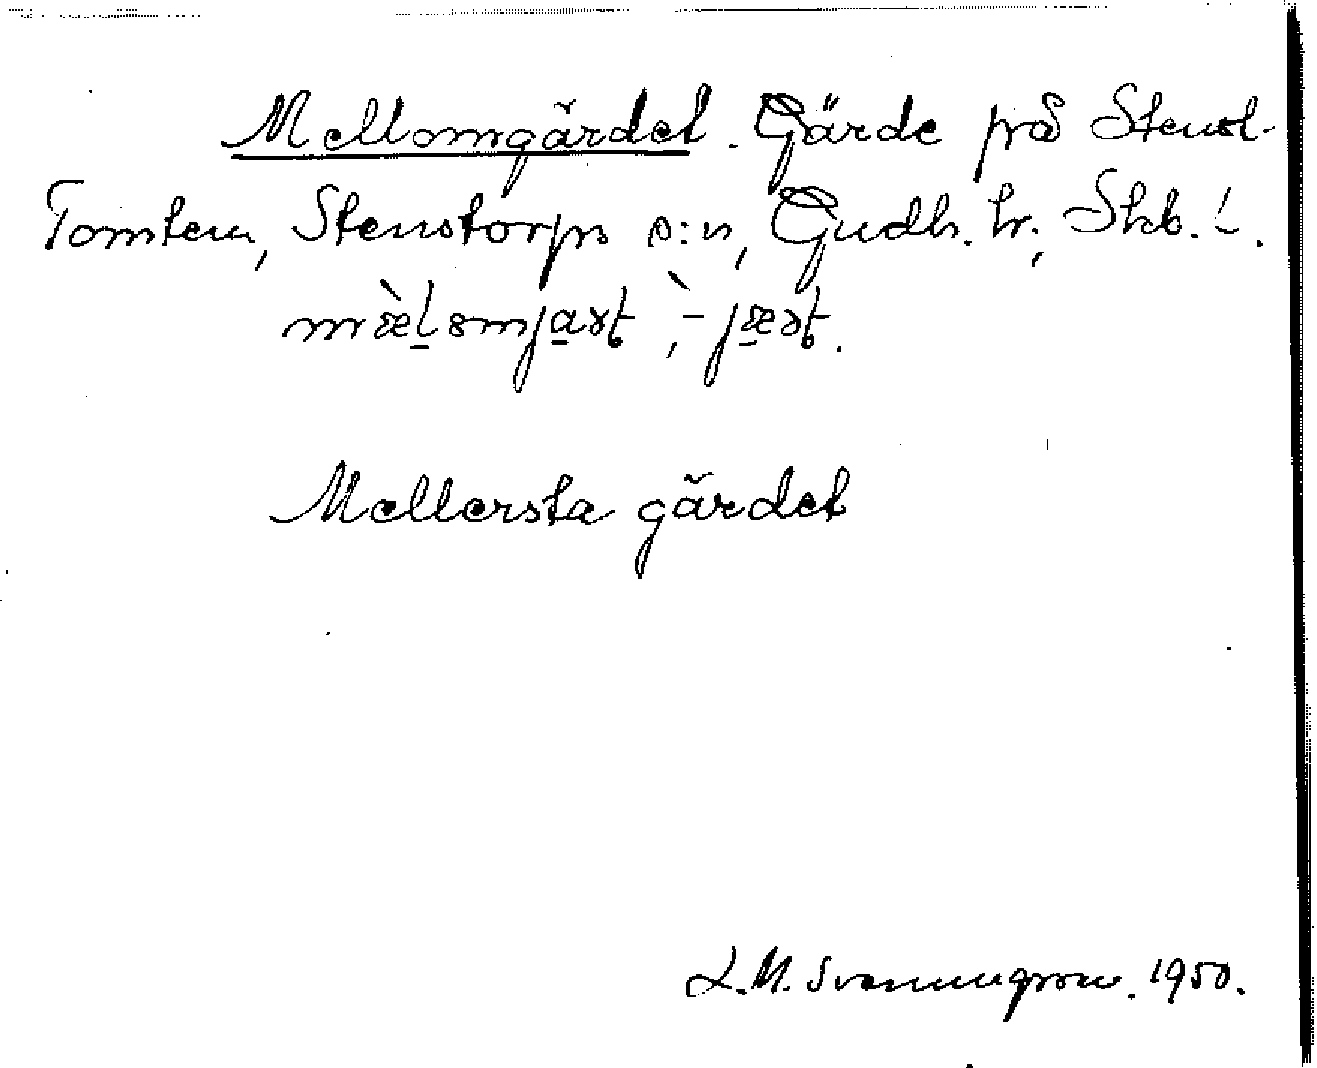 Mellomgärdet. Gärde på Stenst-
Tomten, Stenstorps s:n, Gudh. hr., Skb. l.
mæ̀lomjaʀt, -jæst.
Mellersta gärdet
L.M. Svanungson. 1950.